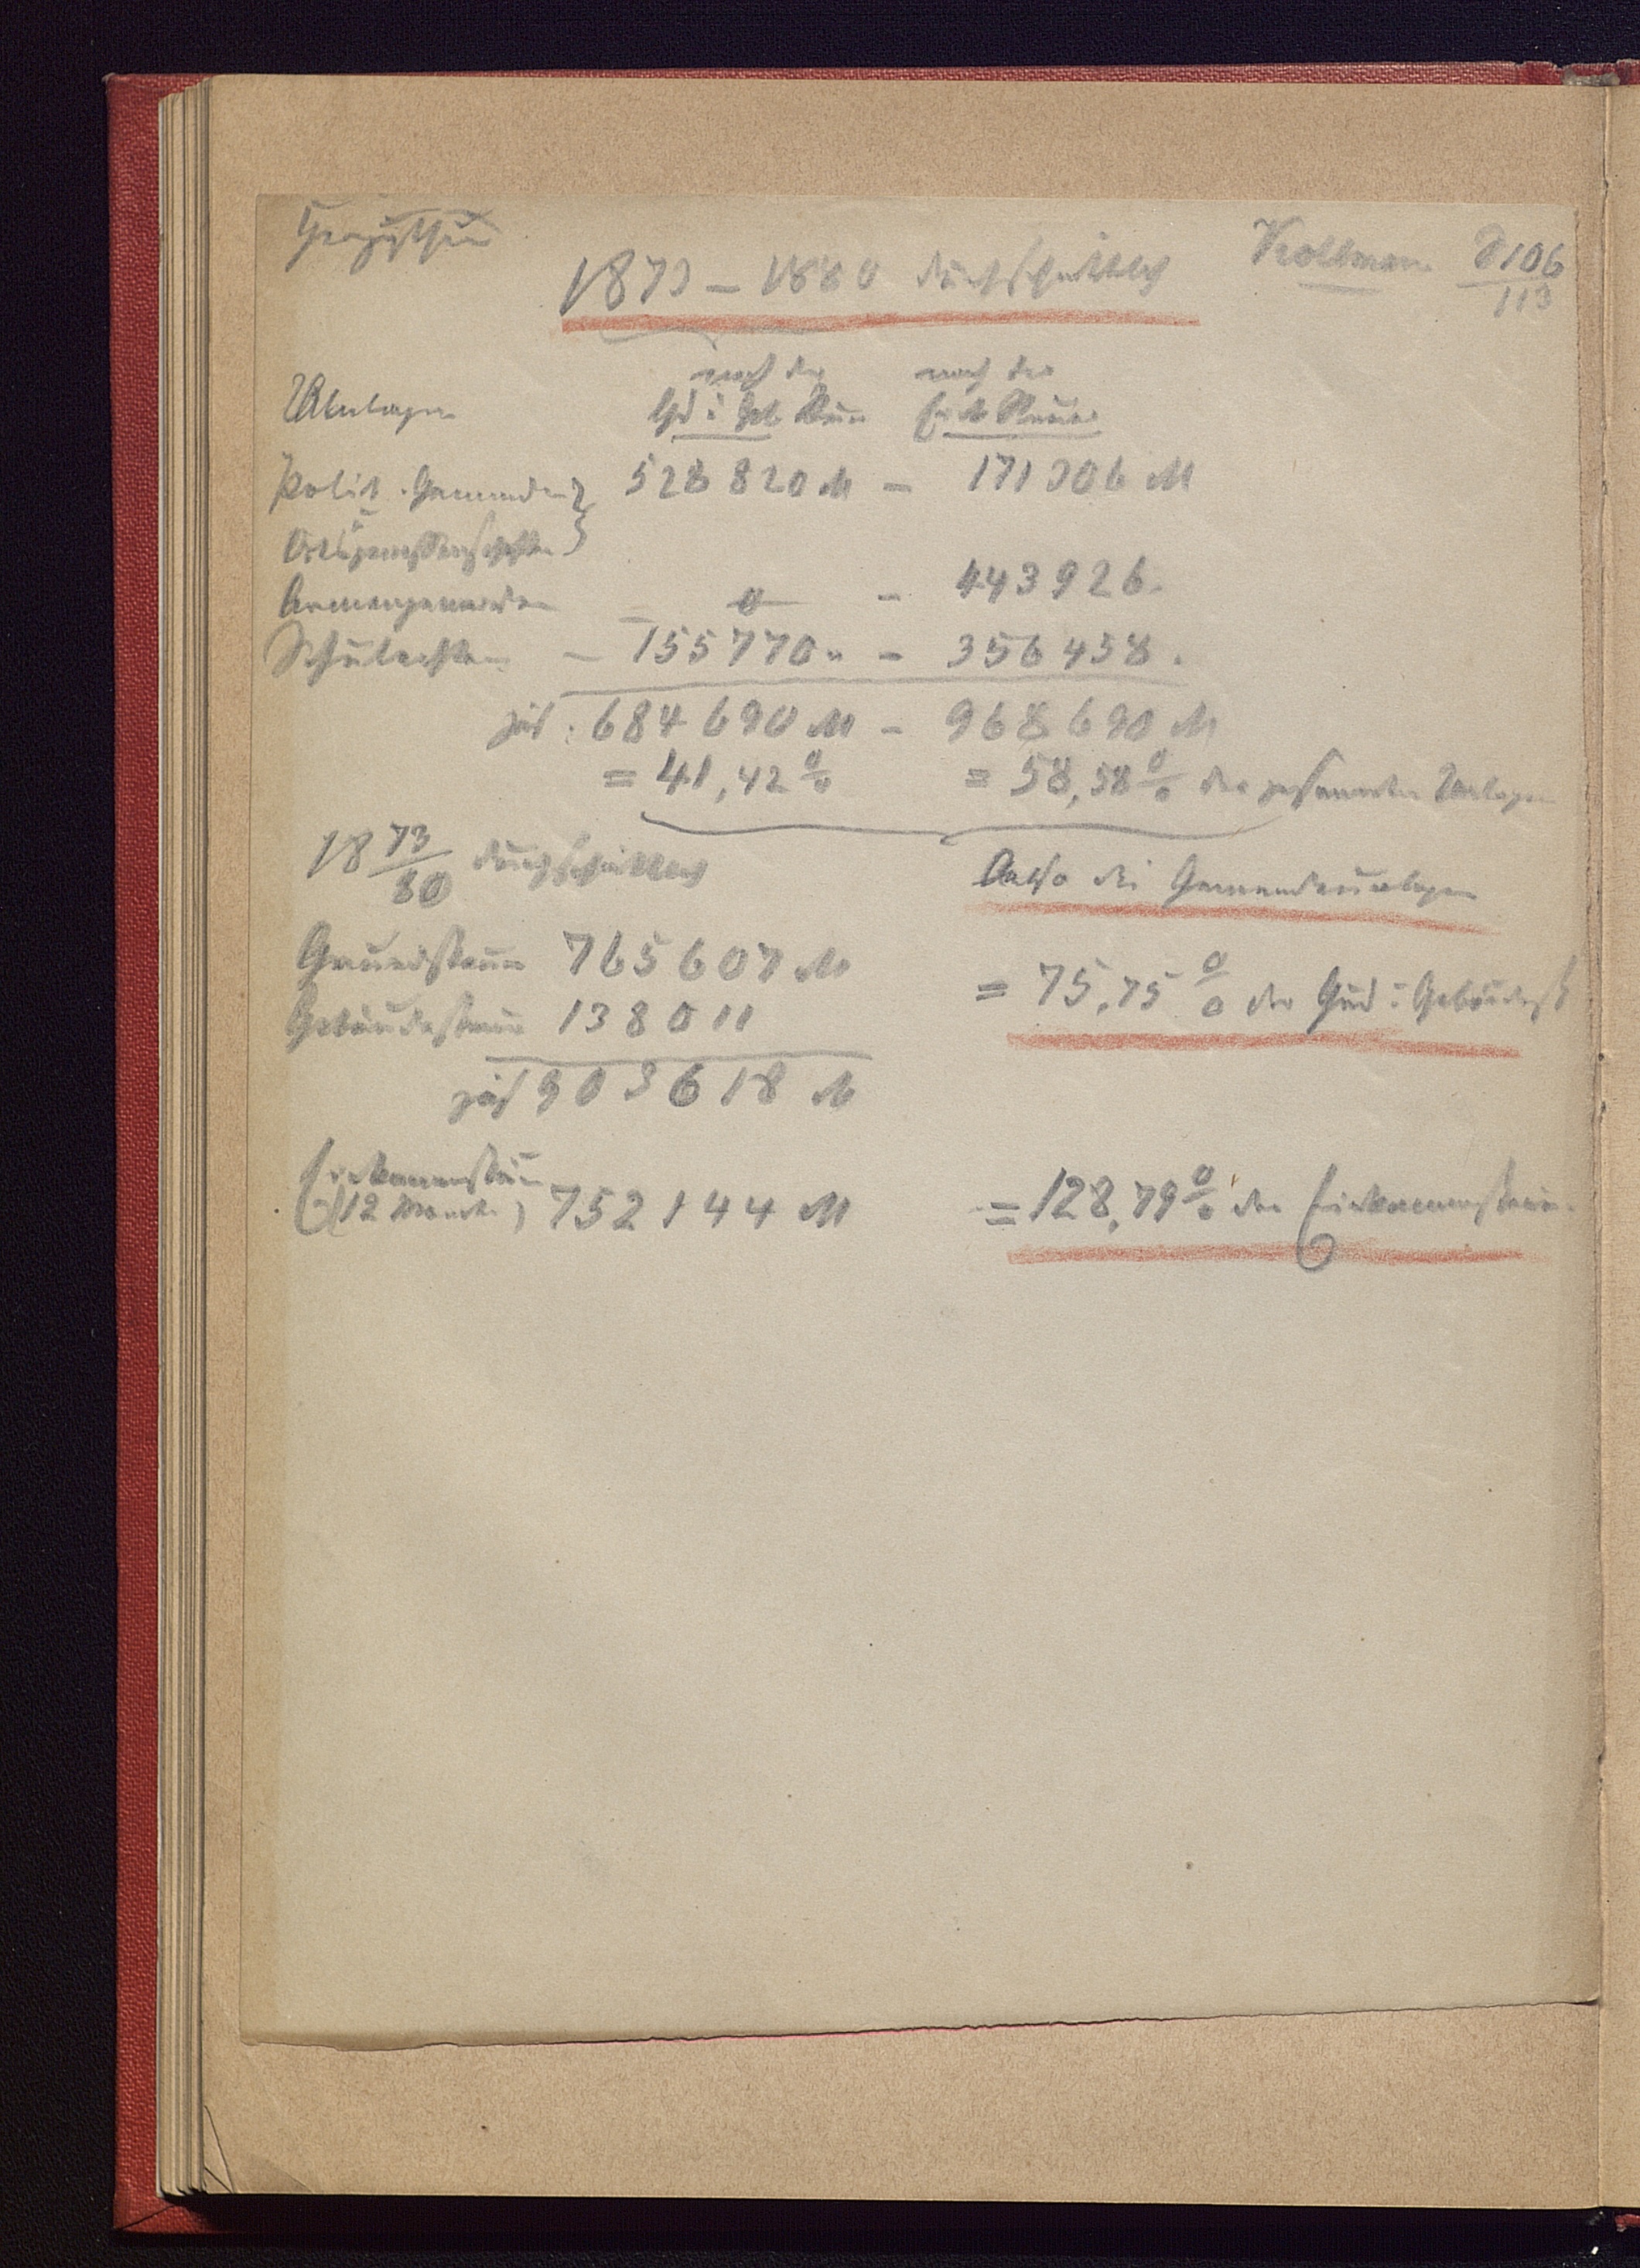 1873 – 1880 durchschnittlich
Kollmann S 106
113
Umlagen
nach der
nach der
Gd u Geb Steuer
Eink Steuer
Polit. Gemeinden 528 820 M – 171 306 M
Ortsgenossenschaften
Armengemeinden – 0 – 443 926.
Schulachten – 155 770 " – 356 458.
zus. 684 690 M – 968 690 M
= 41,42 % = 58,58 % der gesammten Umlagen
18 73/80 durchschnittlich
Also die Gemeindeumlagen
Grundsteuer 765 607 M
= 75,75 % der Grd u Gebäudest
Gebäudesteuer 138 011
zus 903 618 M
Einkommensteuer
(12 Monate) 752 144 M
= 128,79 % der Einkommensteuer.